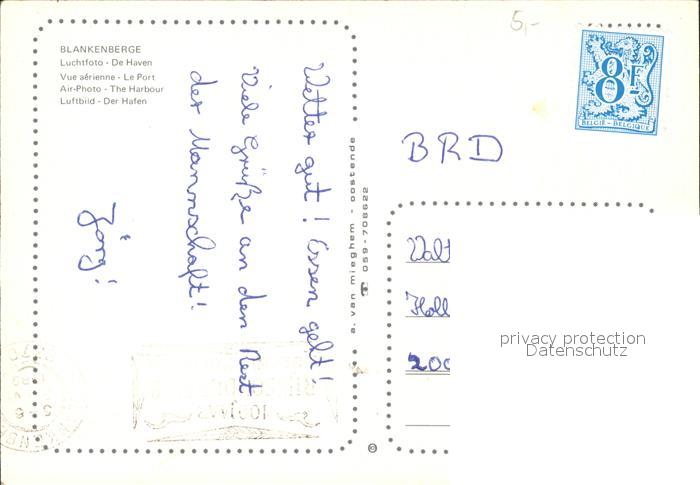 5,-
BLANKENBERGE
Luchtfoto - De Haven
Vue aérienne - Le Port
Air-Photo - The Harbour
Luftbild - Der Hafen
Wetter gut! Essen geht!
Viele Grüße an den Rest
der Mannschaft!
Jörg!
e. van mieghem - oostende
☎ 059-706622
8F
BELGIË - BELGIQUE
BRD
Walt
Holl
200
privacy protection
Datenschutz
©